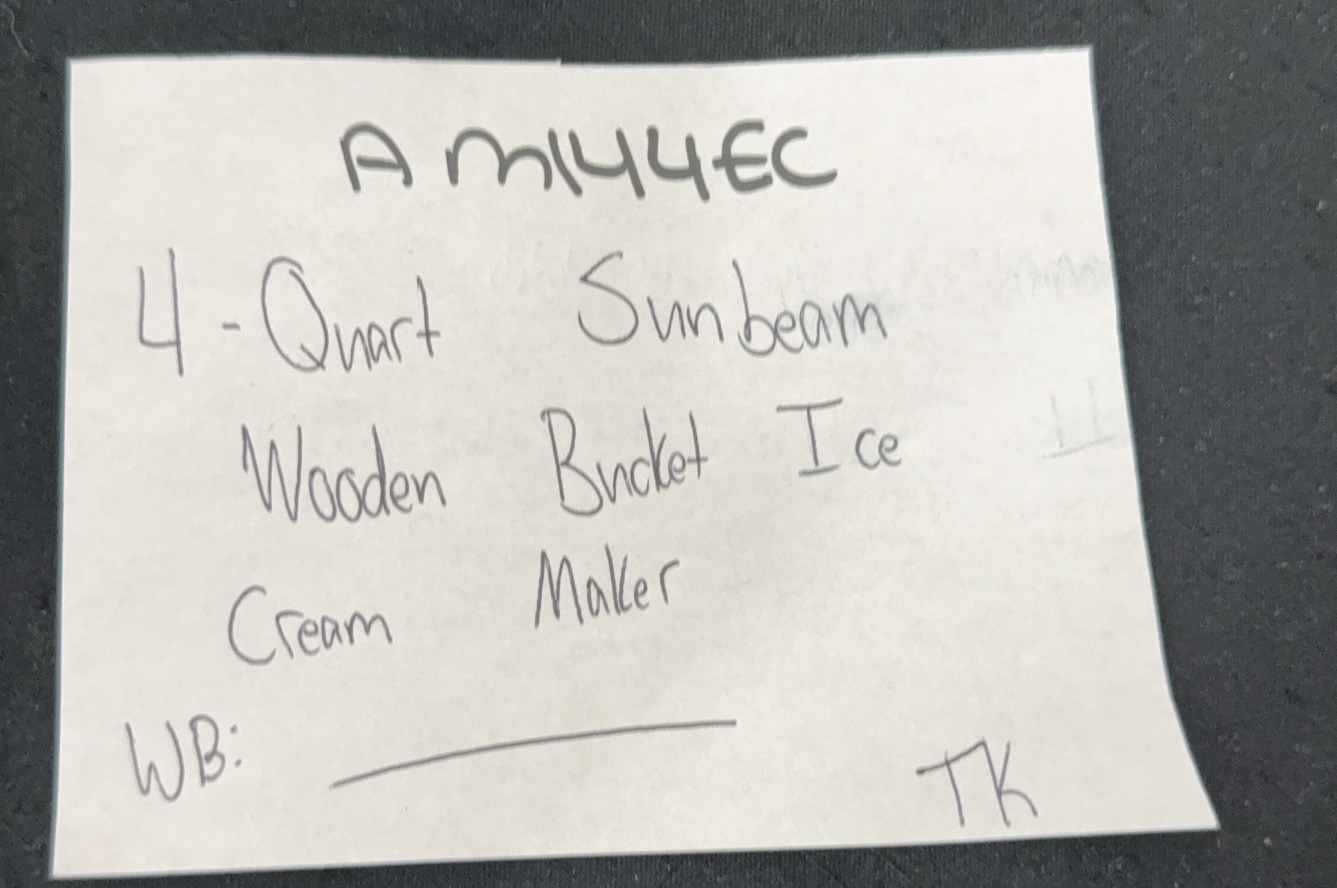 AM144EC
4-Quart Sunbeam
Wooden Bucket Ice
Cream Maker
WB: ________
TK